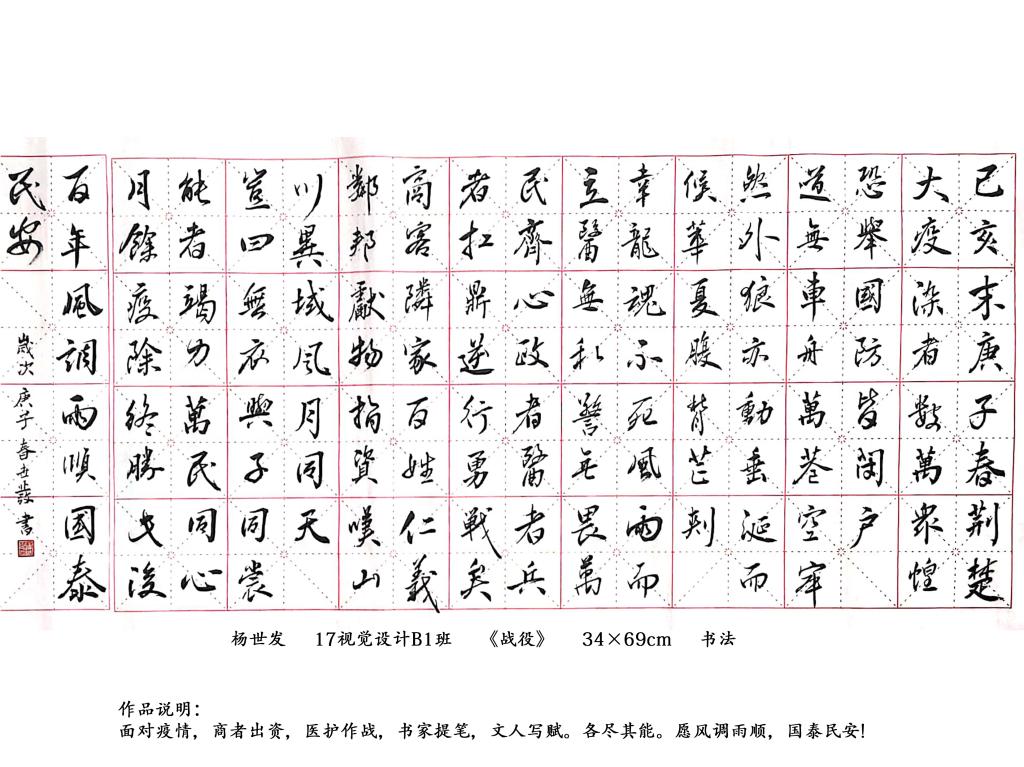 己亥末庚子春荆楚
大疫染者数萬眾惶
恐舉國防皆閉户
道無車舟萬巷空牢
然外狼亦動垂涎而
候華夏腹背芒刺
幸龍魂不死風雨而
立醫無私警无畏萬
民齊心政者醫者兵
者扛鼎逆行勇戦矣
商客隣家百姓仁義
鄰邦獻物捐資嘆山
川異域風月同天
豈曰無衣與子同裳
能者竭力萬民同心
月餘疫除終勝
百年風調雨順國泰
民安
歲次庚子春世發書
杨世发 17视觉设计B1班 《战役》 34×69cm 书法
作品说明：
面对疫情，商者出资，医护作战，书家提笔，文人写赋。各尽其能。愿风调雨顺，国泰民安！